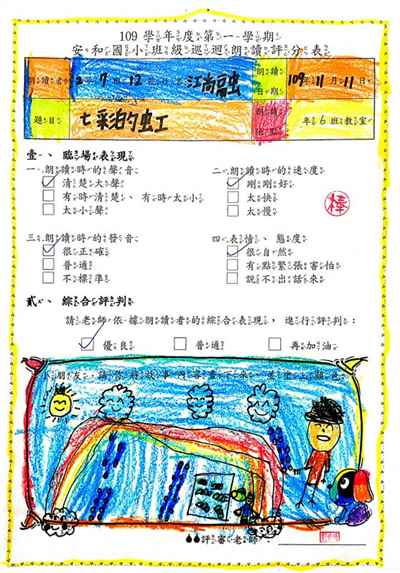 109 學年度第一學期
安和國小班級巡迴朗讀評分表
朗讀者 2年7班12號 江尚融 朗讀日期 109年11月11日
題目 七彩的虹 朗讀 年6班教室
壹、臨場表現
一、朗讀時的聲音 二、朗讀時的速度
清楚大聲 剛剛好
有時清楚、有時太小 太快
太小聲 太慢
棒
三、朗讀時的發音 四、表情、態度
很正確 很自然
普通 有點緊張害怕
不標準 說不出話來
貳、綜合評判
請老師依據朗讀者的綜合表現,進行評判:
優良 普通 再加油
小朋友,請你將故事內容畫下來,並塗上顏色
評審老師: